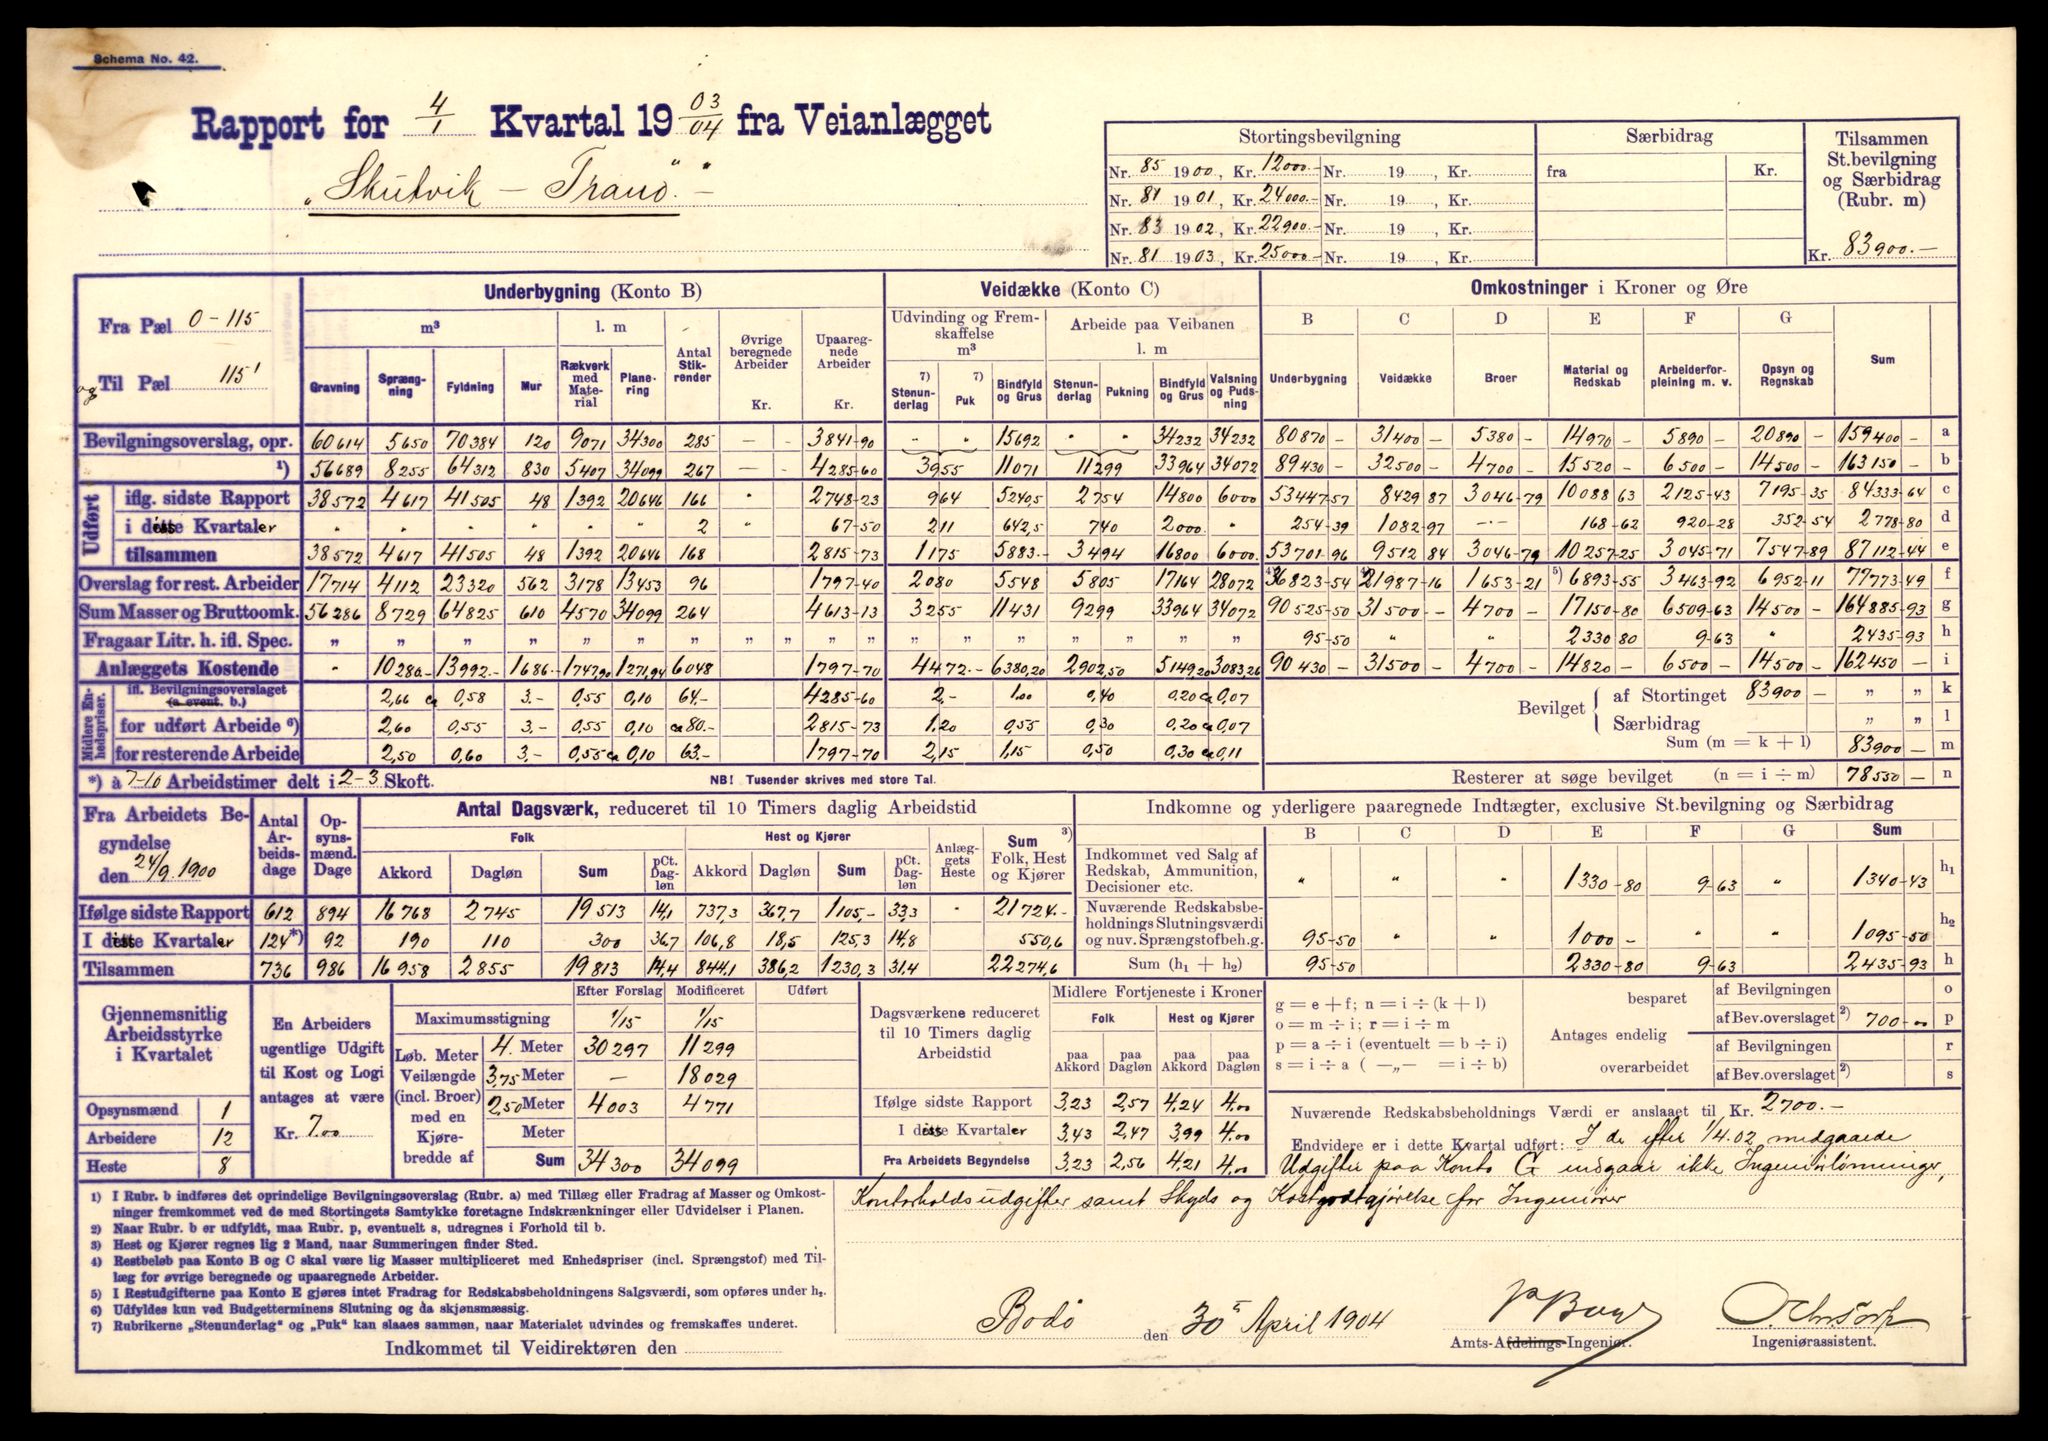 Schema No. 42.
Rapport for 4/1 Kvartal 19 03/04 fra Veianlægget
„Skutvik – Tranö."
Stortingsbevilgning | Særbidrag | Tilsammen St.bevilgning og Særbidrag (Rubr. m)
Nr. 85 1900, Kr. 12000.- Nr. 19 , Kr. | fra Kr.
Nr. 81 1901, Kr. 24000.- Nr. 19 , Kr.
Nr. 83 1902, Kr. 22900.- Nr. 19 , Kr.
Nr. 81 1903, Kr. 25000.- Nr. 19 , Kr. | Kr. 83900.-
Fra Pæl 0-115
og Til Pæl 115'
Underbygning (Konto B) | Veidække (Konto C) | Omkostninger i Kroner og Øre
m³ | l. m | Antal Stikrender | Øvrige beregnede Arbeider Kr. | Upaaregnede Arbeider Kr. | Udvinding og Fremskaffelse m³ | Arbeide paa Veibanen l. m | B | C | D | E | F | G
Gravning | Sprængning | Fyldning | Mur | Rækverk med Materiale | Planering | 7) Stenunderlag | 7) Puk | Bindfyld og Grus | Stenunderlag | Pukning | Bindfyld og Grus | Valsning og Pudsning | Underbygning | Veidække | Broer | Material og Redskab | Arbeiderforpleining m. v. | Opsyn og Regnskab | Sum
Bevilgningsoverslag, opr. | 60614 | 5650 | 70384 | 120 | 9071 | 34300 | 285 | - | 3841-90 | " | " | 15692 | " | " | 34232 | 34232 | 80870- | 31400- | 5380- | 14970- | 5890- | 20890- | 159400- | a
1) | 56689 | 8255 | 64312 | 830 | 5407 | 34099 | 267 | - | 4285-60 | 3955 | 11071 | 11299 | 33964 | 34072 | 89430- | 32500- | 4700- | 15520- | 6500- | 14500- | 163150- | b
Udført
iflg. sidste Rapport | 38572 | 4617 | 41505 | 48 | 1392 | 20646 | 166 | " | 2748-23 | 964 | 5240,5 | 2754 | 14800 | 6000 | 53447-57 | 8429 87 | 3046-79 | 10088 63 | 2125-43 | 7195-35 | 84333-64 | c
i disse Kvartaler | " | " | " | " | " | " | 2 | " | 67-50 | 211 | 642,5 | 740 | 2000. | " | 254-39 | 1082-97 | -.- | 168-62 | 920-28 | 352-54 | 2778-80 | d
tilsammen | 38572 | 4617 | 41505 | 48 | 1392 | 20646 | 168 | 2815-73 | 1175 | 5883.- | 3494 | 16800 | 6000. | 53701-96 | 9512 84 | 3046-79 | 10257-25 | 3045-71 | 7547-89 | 87112-44 | e
Overslag for rest. Arbeider | 17714 | 4112 | 23320 | 562 | 3178 | 13453 | 96 | 1797-40 | 2080 | 5548 | 5805 | 17164 | 28072 | 4) 36823-54 | 4) 21987-16 | 1653-21 | 5) 6893-55 | 3463-92 | 6952-11 | 77773-49 | f
Sum Masser og Bruttoomk. | 56286 | 8729 | 64825 | 610 | 4570 | 34099 | 264 | 4613-13 | 3255 | 11431 | 9299 | 33964 | 34072 | 90525-50 | 31500- | 4700- | 17150-80 | 6509-63 | 14500- | 164885-93 | g
Fragaar Litr. h. ifl. Spec. | „ | „ | „ | „ | „ | „ | „ | „ | „ | „ | „ | „ | „ | „ | „ | „ | 95-50 | " | " | 2330 80 | 9-63 | " | 2435-93 | h
Anlæggets Kostende | " | 10280- | 13992.- | 1686.- | 1747,90 | 1271,94 | 6048 | 1797-70 | 4472.- | 6380,20 | 2902,50 | 5149,20 | 3083,26 | 90430- | 31500- | 4700- | 14820- | 6500- | 14500- | 162450- | i
Midlere Enhedspriser.
ifl. Bevilgningsoverslaget (a event. b.) | 2,66 | ca 0,58 | 3.- | 0,55 | 0,10 | 64.- | 4285-60 | 2.- | 1.00 | 0,40 | 0,20 | ca 0,07
for udført Arbeide 6) | 2,60 | 0,55 | 3.- | 0,55 | 0,10 | ca 80.- | 2815-73 | 1,20 | 0,55 | 0,30 | 0,20 | ca 0,07
for resterende Arbeide | 2,50 | 0,60 | 3.- | 0,55 | ca 0,10 | 63.- | 1797-70 | 2,15 | 1,15 | 0,50 | 0,30 | ca 0,11
Bevilget af Stortinget 83900- | „ | „ | k
Særbidrag | „ | „ | l
Sum (m = k + l) 83900- m
Resterer at søge bevilget (n = i ÷ m) 78550- n
*) à 7-10 Arbeidstimer delt i 2-3 Skoft. NB! Tusender skrives med store Tal.
Fra Arbeidets Begyndelse den 24/9. 1900
Antal Arbeidsdage | Opsynsmænd. Dage | Antal Dagsværk, reduceret til 10 Timers daglig Arbeidstid
Folk | Hest og Kjører | Anlæggets Heste | Sum 3) Folk, Hest og Kjører
Akkord | Dagløn | Sum | pCt. Dagløn | Akkord | Dagløn | Sum | pCt. Dagløn
Ifølge sidste Rapport | 612 | 894 | 16768 | 2745 | 19513 | 14,1 | 737,3 | 367,7 | 1105,- | 33,3 | " | 21724.-
I disse Kvartaler | 124*) | 92 | 190 | 110 | 300 | 36,7 | 106,8 | 18,5 | 125,3 | 14,8 | 550,6
Tilsammen | 736 | 986 | 16958 | 2855 | 19813 | 14,4 | 844,1 | 386,2 | 1230,3 | 31,4 | 22274,6
Indkomne og yderligere paaregnede Indtægter, exclusive St.bevilgning og Særbidrag
B | C | D | E | F | G | Sum
Indkommet ved Salg af Redskab, Ammunition, Decisioner etc. | " | " | " | 1330-80 | 9-63 | " | 1340-43 | h1
Nuværende Redskabsbeholdnings Slutningsværdi og nuv. Sprængstofbeh.g. | 95-50 | " | " | 1000- | " | " | 1095-50 | h2
Sum (h1 + h2) | 95-50 | 2330-80 | 9-63 | 2435-93 | h
Gjennemsnitlig Arbeidsstyrke i Kvartalet
Opsynsmænd 1
Arbeidere 12
Heste 8
En Arbeiders ugentlige Udgift til Kost og Logi antages at være Kr. 7.00
Efter Forslag | Modificeret | Udført
Maximumsstigning | 1/15 | 1/15
Løb. Meter Veilængde (incl. Broer) med en Kjørebredde af
4. Meter | 30297 | 11299
3,75 Meter | — | 18029
2,50 Meter | 4003 | 4771
Meter
Sum | 34300 | 34099
Dagsværkene reduceret til 10 Timers daglig Arbeidstid
Midlere Fortjeneste i Kroner
Folk | Hest og Kjører
paa Akkord | paa Dagløn | paa Akkord | paa Dagløn
Ifølge sidste Rapport | 3,23 | 2,57 | 4,24 | 4.00
I disse Kvartaler | 3,43 | 2,47 | 3,99 | 4.00
Fra Arbeidets Begyndelse | 3,23 | 2,56 | 4,21 | 4.00
g = e + f; n = i ÷ (k + l)
o = m ÷ i; r = i ÷ m
p = a ÷ i (eventuelt = b ÷ i)
s = i ÷ a ( —„— = i ÷ b)
Antages endelig
besparet | af Bevilgningen | o
af Bev.overslaget 2) 700-00 | p
overarbeidet | af Bevilgningen | r
af Bev.overslaget 2) | s
Nuværende Redskabsbeholdnings Værdi er anslaaet til Kr. 2700.-
Endvidere er i dette Kvartal udført: I de efter 1/4.02 medgaaede
Udgifter paa Konto G indgaar ikke Ingeniörlönninger,
Kontorholdsudgifter samt Skyds og Kostgodtgjörelse for Ingeniörer
1) I Rubr. b indføres det oprindelige Bevilgningsoverslag (Rubr. a) med Tillæg eller Fradrag af Masser og Omkostninger fremkommet ved de med Stortingets Samtykke foretagne Indskrænkninger eller Udvidelser i Planen.
2) Naar Rubr. b er udfyldt, maa Rubr. p, eventuelt s, udregnes i Forhold til b.
3) Hest og Kjører regnes lig 2 Mand, naar Summeringen finder Sted.
4) Restbeløb paa Konto B og C skal være lig Masser multipliceret med Enhedspriser (incl. Sprængstof) med Tillæg for øvrige beregnede og upaaregnede Arbeider.
5) I Restudgifterne paa Konto E gjøres intet Fradrag for Redskabsbeholdningens Salgsværdi, som opføres under h2.
6) Udfyldes kun ved Budgetterminens Slutning og da skjønsmæssig.
7) Rubrikerne „Stenunderlag" og „Puk" kan slaaes sammen, naar Materialet udvindes og fremskaffes underet.
Indkommet til Veidirektøren den
Bodö den 30 April 1904
Amts-Afdelings-Ingeniør.
Ingeniørassistent.